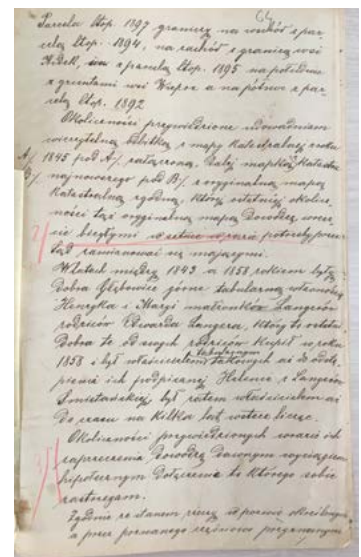 64
Parcela ltop. 1897 graniczy na wschód z par-
celą ltop. 1894, na zachód z granicą wsi
z parcelą ltop. 1895 na południe
z gruntami wsi Wieprz a na północ z par-
celą ltop. 1892
Okoliczności przywiedzione udowadniam
wierzytelną odbitką z mapy katastralnej z roku
A/. 1845 pod A/. załączoną, dalej mapką katastru
B/. najnowszego pod B/. z oryginalną mapą
katastralną zgodną, którą ostatnią okolicz-
ność tąż oryginalną mapą dowodzę, wresz-
cie biegłymi w razie potrzeby przez
sąd zamianować się mającymi.
W latach między 1843 a 1858 rokiem były
dobra Głębowice górne tabularną własnością
Henryka i Maryi małżonków Langerów
rodziców Edwarda Langera, który to ostatni
dobra te od swych rodziców kupił w roku
1858 i był właścicielem tabularnym takowych aż do odstą-
pienia ich podpisanej Helenie z Langerów
był zatem właścicielem aż
do czasu na kilka lat wstecz licząc.
Okoliczności przywiedzionych w razie ich
zaprzeczenia dowodzę dawnym wyciągiem
hipotecznym dołączenie to którego sobie
zastrzegam.
Zgodnie ze stanem rzeczy w pozwie określonym
a przez pozwanego częściowo przyznanym